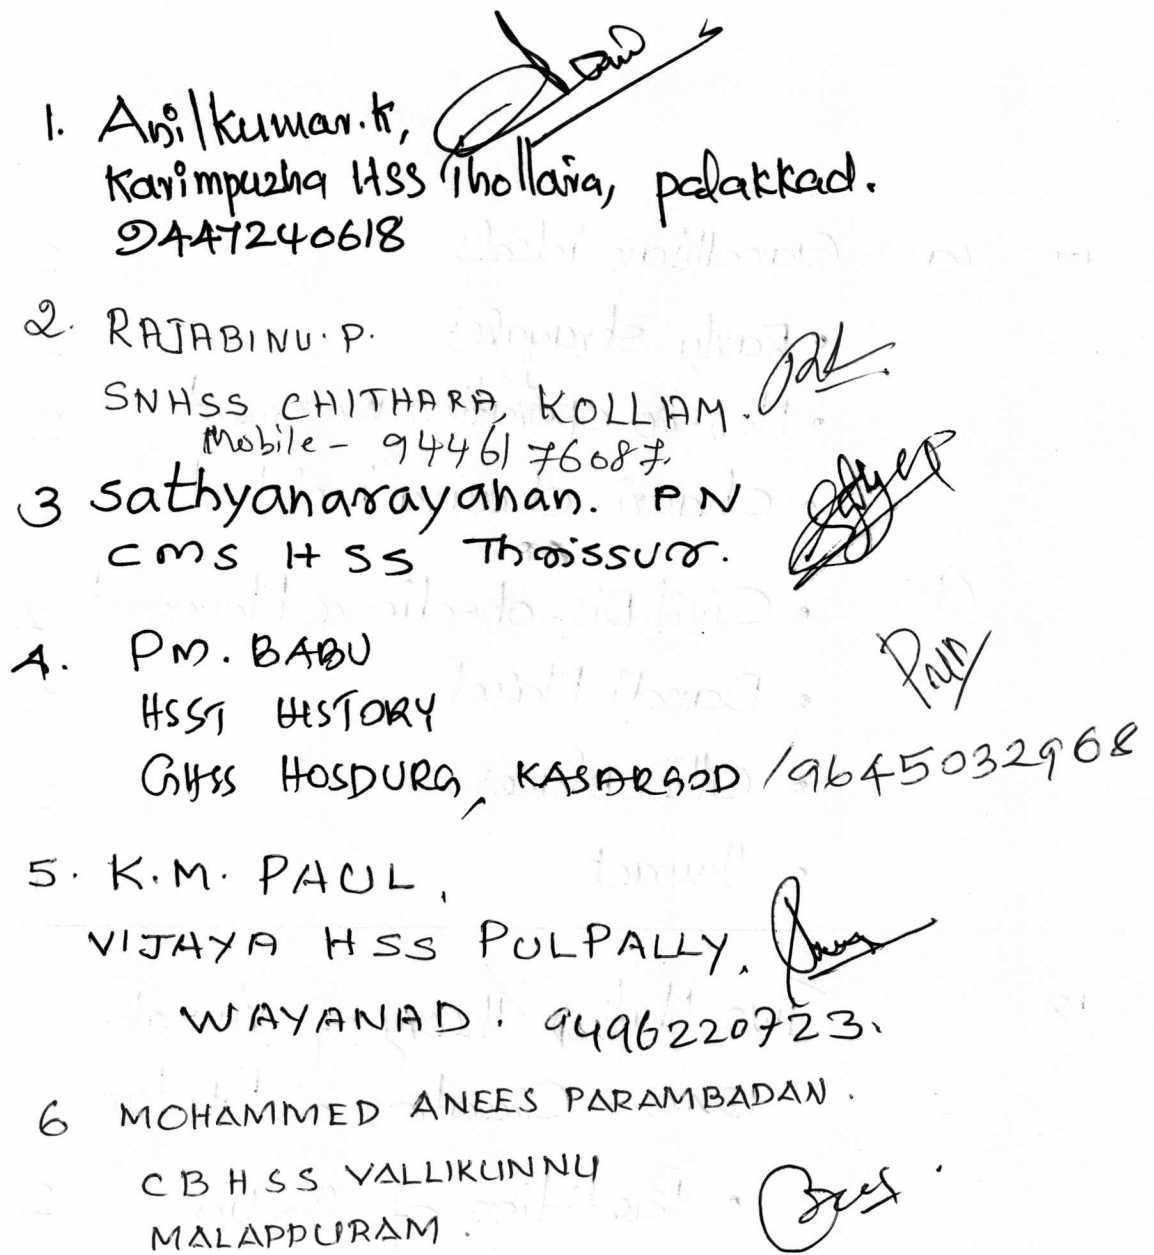 1. Anilkumar.K,
Karimpuzha HSS Thollara, palakkad.
9447240618
2. RAJABINU.P.
SNHSS CHITHARA, KOLLAM.
Mobile - 9446176087.
3 Sathyanarayanan. PN
CMS HSS Thrissur.
4. PM. BABU
HSST HISTORY
GHSS HOSDURG, KASARGOD /9645032968
5. K.M. PAUL,
VIJAYA HSS PULPALLY,
WAYANAD. 9496220723.
6 MOHAMMED ANEES PARAMBADAN.
CBHSS VALLIKUNNU
MALAPPURAM.